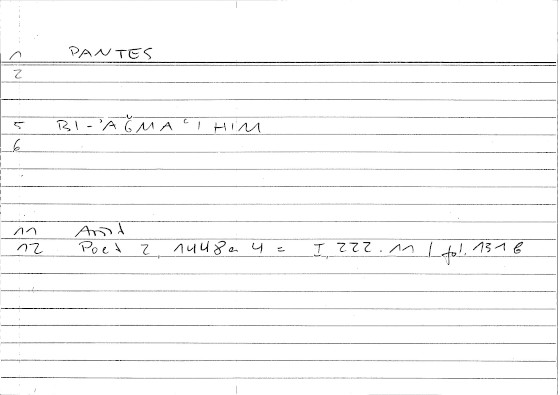 1 PANTES
2
5 BI-'AǦMAʿIHIM
6
11 Arist
12 Poet 2, 1448a 4 = I, 222.11 / fol. 131b